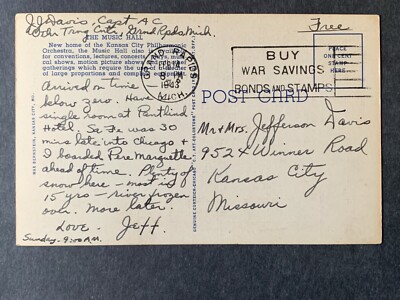 JJ Davis, Capt. A.C.
Free
Grand Rapids Mich.
THE MUSIC HALL
New home of the Kansas City Philharmonic
Orchestra, the Music Hall is also used
for conventions, lectures, concerts,
cal shows, motion picture shows
gatherings which require the
of large proportions and complete
GRAND RAPIDS
8 PM
1943
MICH.
BUY
WAR SAVINGS
BONDS AND STAMPS
PLACE
ONE CENT
STAMP
HERE
POST CARD
Arrived on time
below zero. Have
single room at Pantlind
Hotel. Sa Fe was 30
mins late into Chicago &
I boarded Pere Marquette
ahead of time. Plenty of
snow here - most in
15 yrs - river frozen
over. More later.
Love. Jeff.
Sunday - 9:00 A.M.
Mr & Mrs. Jefferson Davis
952 & Winner Road
Kansas City
Missouri
MAX BERNSTEIN, KANSAS CITY, MO.
GENUINE CURTEICH-CHICAGO